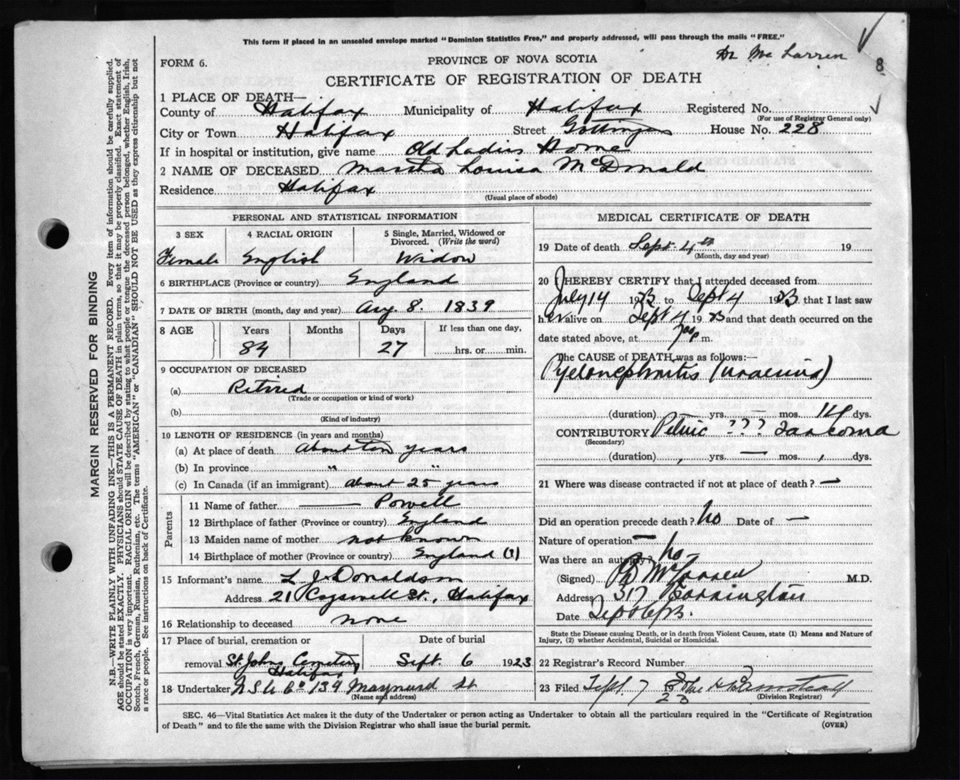 This form if placed in an unsealed envelope marked "Dominion Statistics Free," and properly addressed, will pass through the mails "FREE."
FORM 6.
PROVINCE OF NOVA SCOTIA
Dr McLarren
8
CERTIFICATE OF REGISTRATION OF DEATH
1 PLACE OF DEATH—
County of Halifax Municipality of Halifax Registered No.
(For use of Registrar General only)
City or Town Halifax Street Gottingen House No. 228
If in hospital or institution, give name Old Ladies Home
2 NAME OF DECEASED Martha Louisa McDonald
Residence Halifax
(Usual place of abode)
PERSONAL AND STATISTICAL INFORMATION
3 SEX 4 RACIAL ORIGIN 5 Single, Married, Widowed or Divorced. (Write the word)
Female English Widow
6 BIRTHPLACE (Province or country) England
7 DATE OF BIRTH (month, day and year) Aug 8. 1839
8 AGE Years Months Days If less than one day,
84 27 ......hrs. or ......min.
9 OCCUPATION OF DECEASED
(a) Retired
(Trade or occupation or kind of work)
(b)
(Kind of industry)
10 LENGTH OF RESIDENCE (in years and months)
(a) At place of death About ten years
(b) In province " "
(c) In Canada (if an immigrant) about 25 years
Parents
11 Name of father — Powell
12 Birthplace of father (Province or country) England
13 Maiden name of mother not known
14 Birthplace of mother (Province or country) England (?)
15 Informant's name L J Donaldson
Address 21 Cogswell St., Halifax
16 Relationship to deceased none
17 Place of burial, cremation or removal Date of burial
St. Johns Cemetery Halifax Sept. 6 1923
18 Undertaker 139 Maynard St
(Name and address)
MEDICAL CERTIFICATE OF DEATH
19 Date of death Sept. 4th 19
(Month, day and year)
20 I HEREBY CERTIFY that I attended deceased from
July 14 1923 to Sept 4 1923 that I last saw
her alive on Sept 4 1923 and that death occurred on the
date stated above, at 7 m.
The CAUSE of DEATH was as follows:—
Pyelonephritis (uraemia)
(duration) — yrs. — mos. 14 dys.
CONTRIBUTORY Pelvic ??? Sarcoma
(Secondary)
(duration) , yrs. — mos. , dys.
21 Where was disease contracted if not at place of death? —
Did an operation precede death? No Date of —
Nature of operation —
Was there an autopsy? No
(Signed) M.D.
Address 317 Barrington
Date Sept 6/23.
State the Disease causing Death, or in death from Violent Causes, state (1) Means and Nature of Injury, (2) whether Accidental, Suicidal or Homicidal.
22 Registrar's Record Number
23 Filed Sept 7 1923
(Division Registrar)
SEC. 46—Vital Statistics Act makes it the duty of the Undertaker or person acting as Undertaker to obtain all the particulars required in the "Certificate of Registration of Death" and to file the same with the Division Registrar who shall issue the burial permit. (OVER)
MARGIN RESERVED FOR BINDING
N.B.—WRITE PLAINLY WITH UNFADING INK—THIS IS A PERMANENT RECORD. Every item of information should be carefully supplied.
AGE should be stated EXACTLY. PHYSICIANS should STATE CAUSE OF DEATH in plain terms, so that it may be properly classified. Exact statement of
OCCUPATION is very important. RACIAL ORIGIN will be described by stating to what people or tongue the deceased person belonged, whether English, Irish,
Scotch, French, German, Russian, Ruthenian, etc. The terms "AMERICAN" or "CANADIAN" SHOULD NOT BE USED as they express citizenship but not
a race or people. See instructions on back of Certificate.